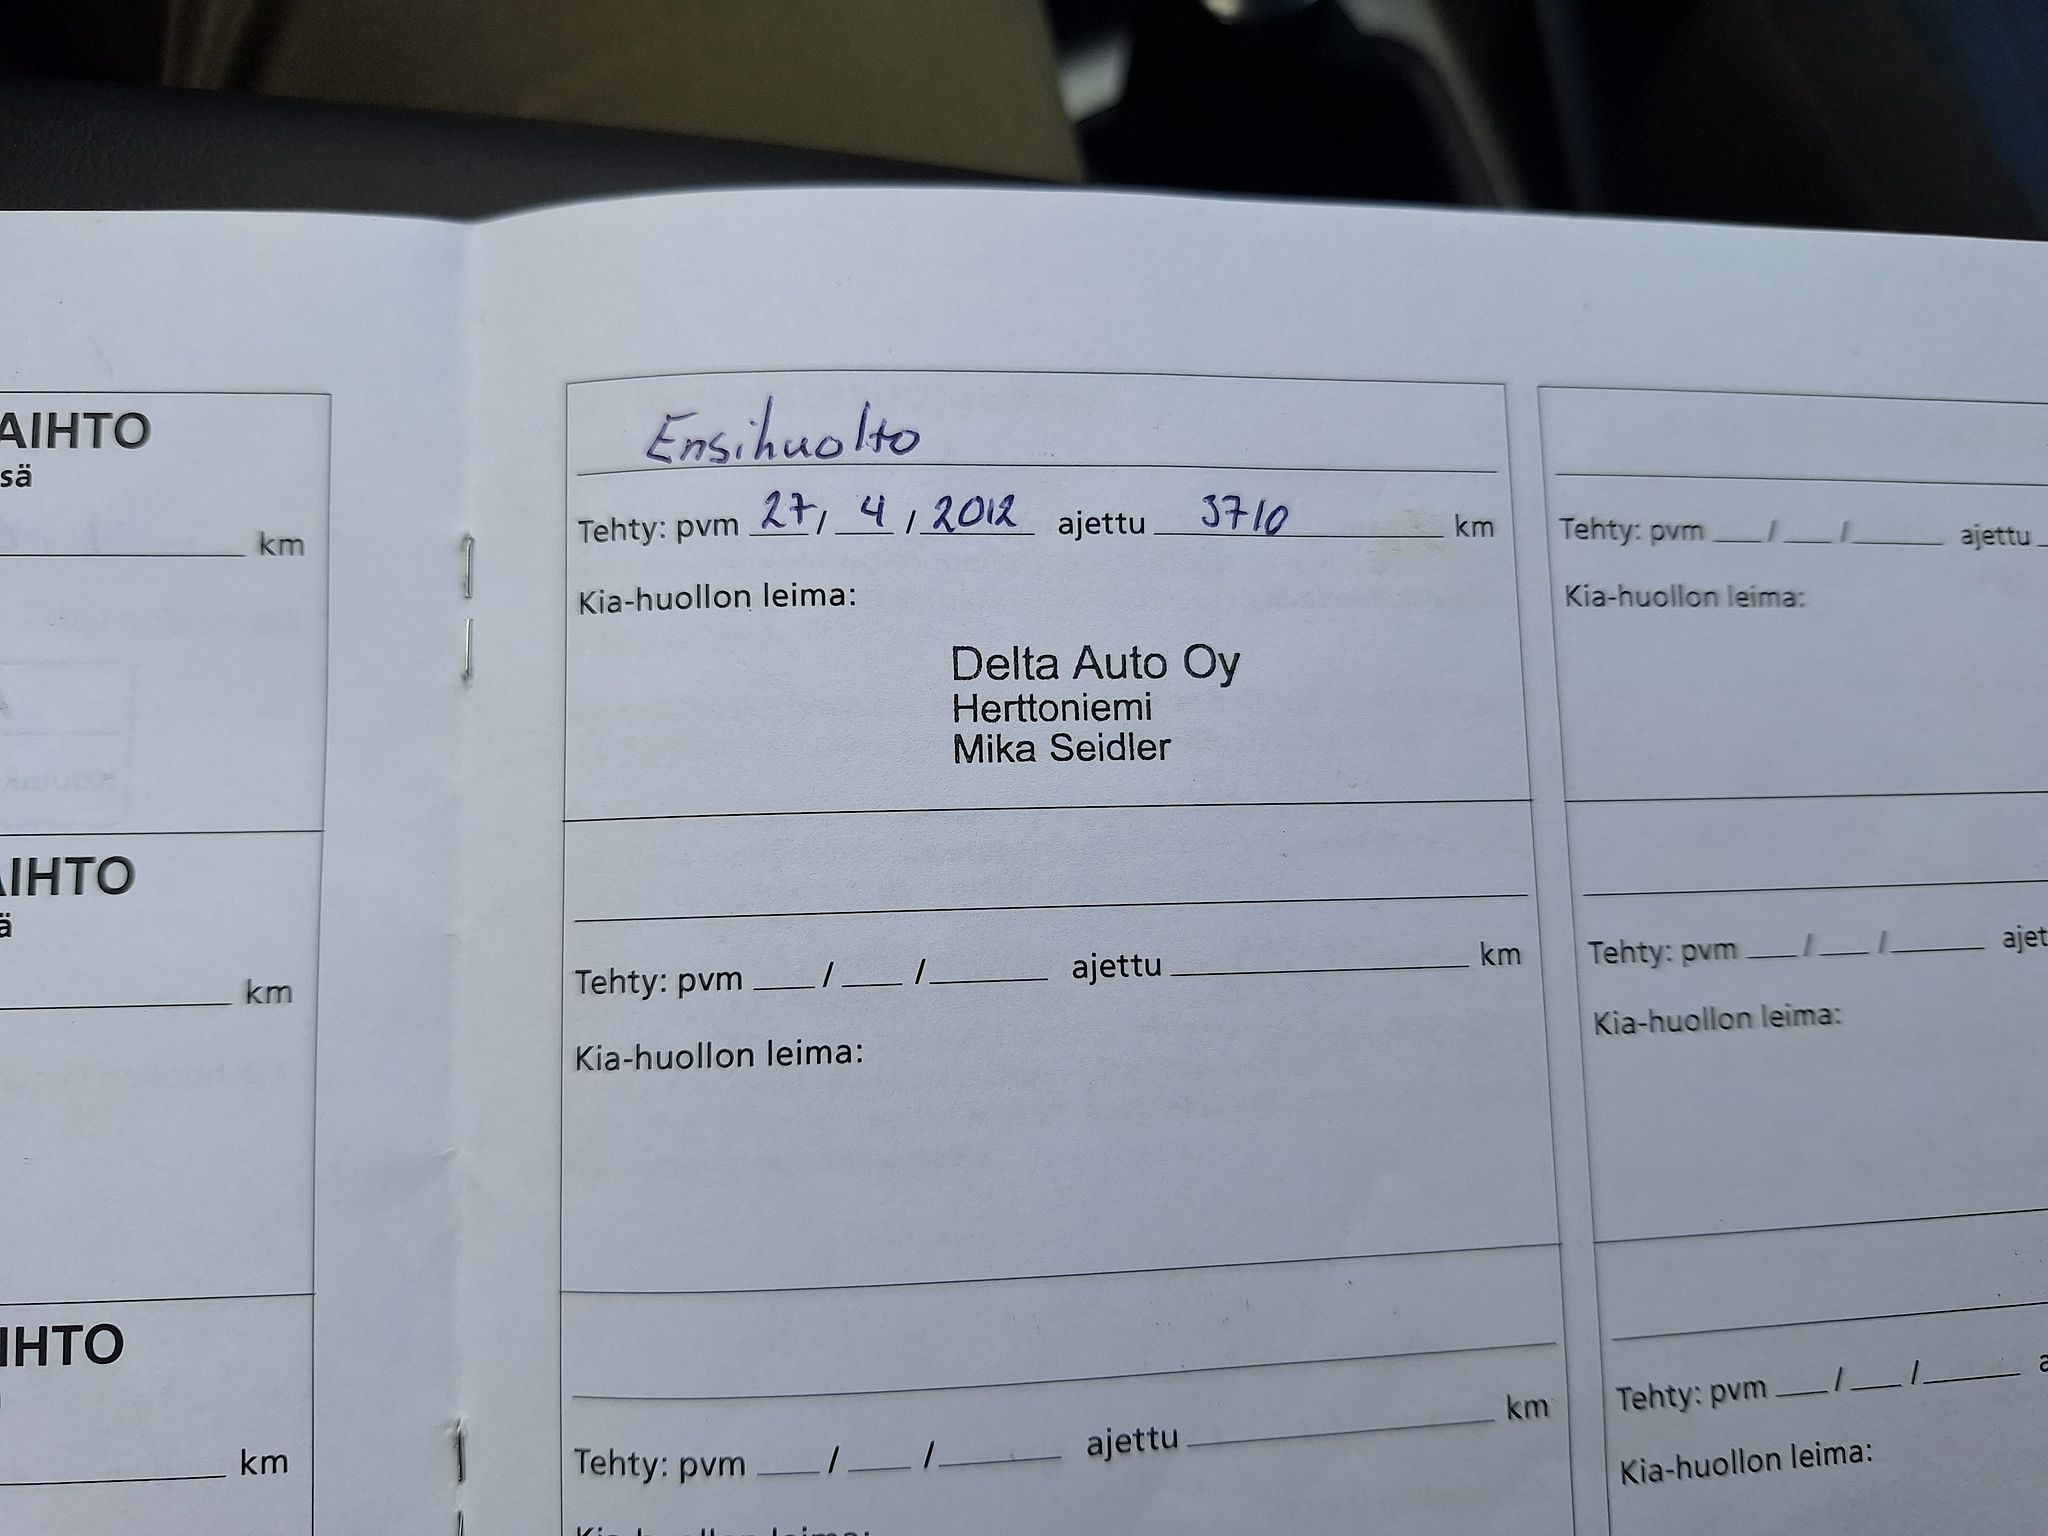 AIHTO
sä
km
AIHTO
ä
km
IHTO
km
Ensihuolto
Tehty: pvm 27/ 4 / 2012 ajettu 3710 km
Kia-huollon leima:
Delta Auto Oy
Herttoniemi
Mika Seidler
Tehty: pvm ___ / ___ / ______ ajettu ______ km
Kia-huollon leima:
Tehty: pvm ___ / ___ / ______ ajettu ______ km
Kia-huollon leima:
Tehty: pvm ___ / ___ / ______ ajettu
Kia-huollon leima:
Tehty: pvm ___ / ___ / ______ ajet
Kia-huollon leima:
Tehty: pvm ___ / ___ / ______ a
Kia-huollon leima: